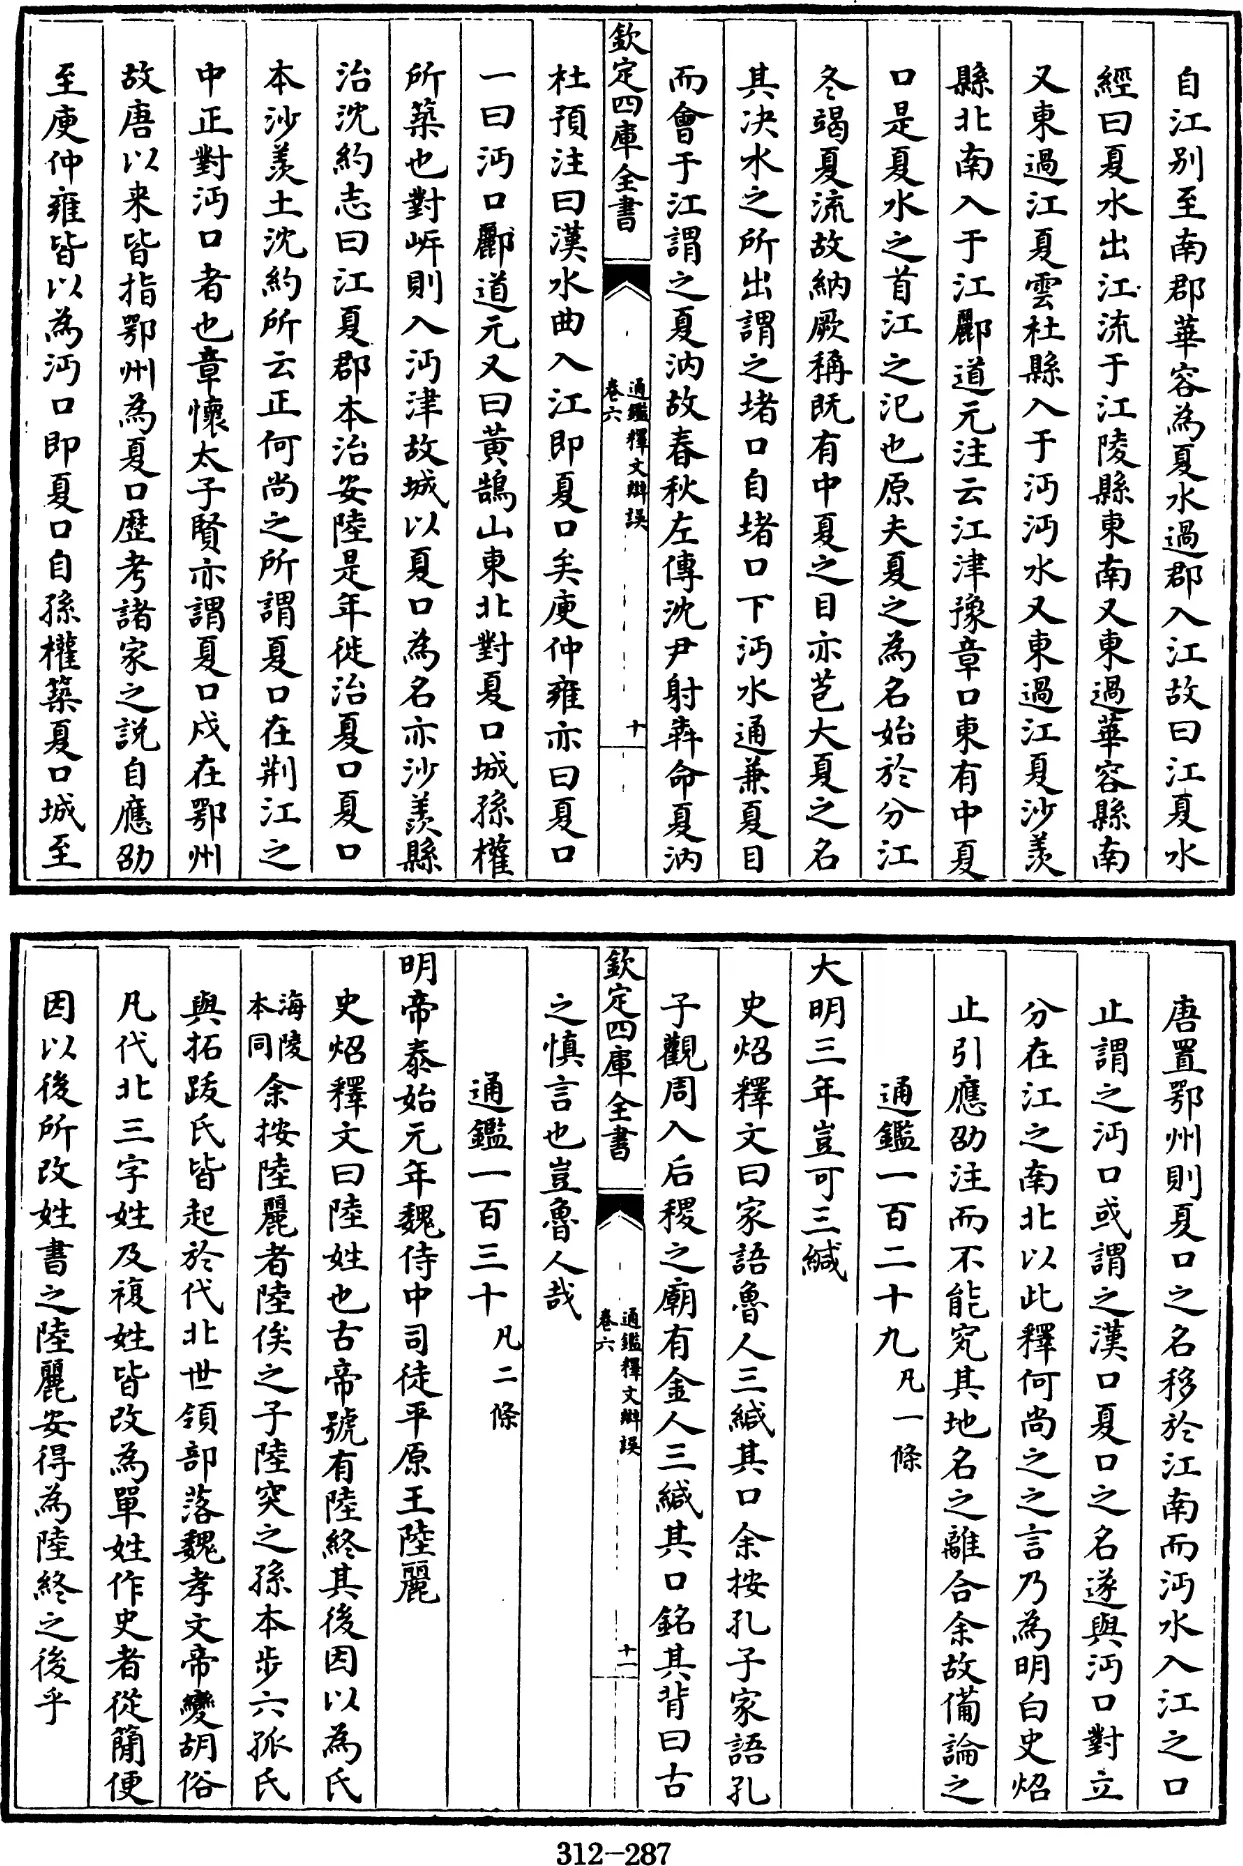 自江别至南郡華容為夏水過郡入江故曰江夏水
經曰夏水出江流于江陵縣東南又東過華容縣南
又東過江夏雲杜縣入于沔沔水又東過江夏沙羨
縣北南入于江酈道元注云江津豫章口東有中夏
口是夏水之首江之汜也原夫夏之為名始於分江
冬竭夏流故納厥稱既有中夏之目亦苞大夏之名
其决水之所出謂之堵口自堵口下沔水通兼夏目
而會于江謂之夏汭故春秋左傳沈尹射奔命夏汭
欽定四庫全書
通鑑釋文辯誤
卷六
十
杜預注曰漢水曲入江即夏口矣庾仲雍亦曰夏口
一曰沔口酈道元又曰黄鵠山東北對夏口城孫權
所築也對岍則入沔津故城以夏口為名亦沙羨縣
治沈約志曰江夏郡本治安陸是年徙治夏口夏口
本沙羨土沈約所云正何尚之所謂夏口在荆江之
中正對沔口者也章懷太子賢亦謂夏口戍在鄂州
故唐以来皆指鄂州為夏口歴考諸家之說自應劭
至庾仲雍皆以為沔口即夏口自孫權築夏口城至
唐置鄂州則夏口之名移於江南而沔水入江之口
止謂之沔口或謂之漢口夏口之名遂與沔口對立
分在江之南北以此釋何尚之之言乃為明白史炤
止引應劭注而不能究其地名之離合余故備論之
通鑑一百二十九凡一條
大明三年豈可三緘
史炤釋文曰家語魯人三緘其口余按孔子家語孔
子觀周入后稷之廟有金人三緘其口銘其背曰古
欽定四庫全書
通鑑釋文辯誤
卷六
十一
之慎言也豈魯人哉
通鑑一百三十凡二條
明帝泰始元年魏侍中司徒平原王陸麗
史炤釋文曰陸姓也古帝號有陸終其後因以為氏
海陵本同余按陸麗者陸俟之子陸突之孫本步六孤氏
與拓跋氏皆起於代北世領部落魏孝文帝變胡俗
凡代北三字姓及複姓皆改為單姓作史者從簡便
因以後所改姓書之陸麗安得為陸終之後乎
312-287